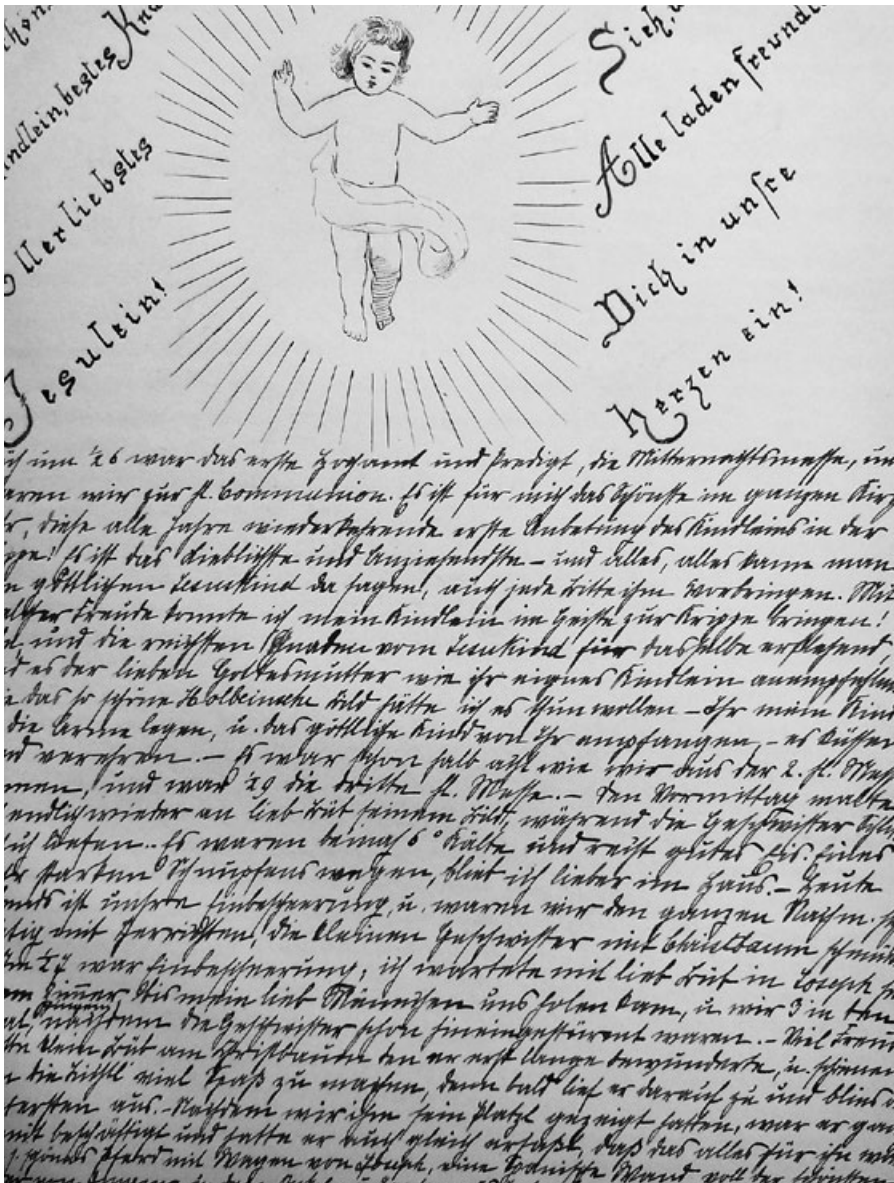 Kindlein, bestes
Allerliebstes
Jesulein!
Sieh,
Alle laden freundl
Dich in unsre
Herzen ein!
um ½6 war das erste Hochamt und Predigt, die Mitternachtsmesse,
waren wir zur hl. Communion. Es ist für mich das Schönste im ganzen
diese alle Jahre wiederkehrende erste Anbetung des Kindleins in der
Es ist das Lieblichste und Anziehendste – und alles, alles kann man
göttlichen Jesukind da sagen, auch jede Bitte ihm vorbringen. Mit
Freude konnte ich mein Kindlein im Geiste zur Krippe bringen!
und die reichsten Gnaden vom Jesukind für dasselbe erflehend
es der lieben Gottesmutter wie ihr eignes Kindlein
das so schöne Holbeinsche Bild hätte ich es thun wollen – Ihr mein Kind
die Arme legen, u. das göttliche Kind von Ihr empfangen, – es küssen
verehren. – Es war schon halb acht wie wir aus der 2. hl. Messe
und war ½9 die dritte hl. Messe. – Den Vormittag malte
endlich wieder an lieb Bub seinem Bild, während die Geschwister
Es waren beinah 6° Kälte und recht gutes Eis. Eines
starken Schnupfens wegen, blieb ich lieber im Haus. – Heute
ist unsre Einbescheerung, u. waren wir den ganzen Nachm.
mit Herrichten, die kleinen Geschwister mit
½7 war Einbescheerung, ich wartete mit lieb Bub in Joseph
Zimmer, bis mein lieb Männchen uns holen kam, u. wir 3 in den
nachdem die Geschwister schon hineingestürmt waren. – Viel
klein Bub am Christbaum den er erst lange bewunderte, u. schienen
die Lichtl viel Spaß zu machen, denn bald lief er darauf zu und blies
aus. – Nachdem wir ihm sein Platzl gezeigt hatten, war er
beschäftigt und hatte er auch gleich erfaßt, daß das alles für ihn
schönes Pferd mit Wagen von Joseph, eine Spanische Wand voll der schönsten